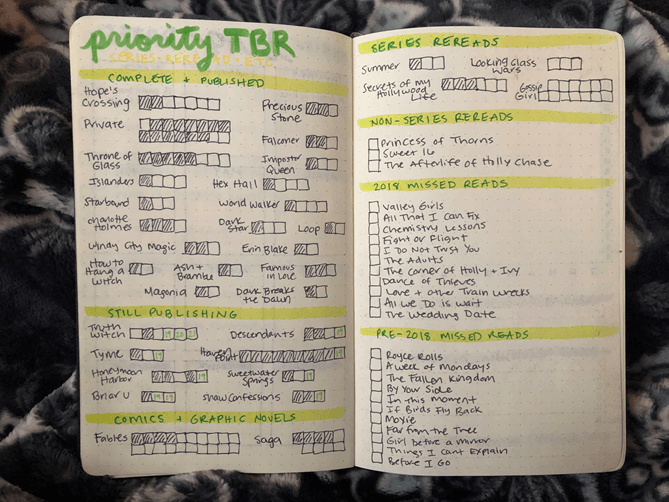 priority TBR
SERIES · REREAD · ETC.
COMPLETE + PUBLISHED
Hope's
Crossing
Precious
Stone
Private
Falconer
Throne of
Glass
Imposter
Queen
Islanders
Hex Hall
Starboard
World Walker
Charlotte
Holmes
Dark
Star
Loop
Windy City Magic
Erin Blake
How to
Hang a
Witch
Ash +
Bramble
Famous
in Love
Magonia
Dark Breaks
the Dawn
STILL PUBLISHING
Truth
Witch
19 20 21
Descendants
19
Tyme
19
Point
19
Honeymoon
Harbor
19
Sweetwater
Springs
19
Briar U
19 19
Snow Confessions
19
COMICS + GRAPHIC NOVELS
Fables
Saga
SERIES REREADS
Summer
Looking Glass
Wars
Secrets of my
Hollywood
Life
Gossip
Girl
NON-SERIES REREADS
Princess of Thorns
Sweet 16
The Afterlife of Holly Chase
2018 MISSED READS
Valley Girls
All That I Can Fix
Chemistry Lessons
Fight or Flight
I Do Not Trust You
The Adults
The Corner of Holly + Ivy
Dance of Thieves
Love + Other Train Wrecks
All We Do is Wait
The Wedding Date
PRE-2018 MISSED READS
Royce Rolls
A Week of Mondays
The Fallen Kingdom
By Your Side
In This Moment
If Birds Fly Back
Moxie
Far from the Tree
Girl Before a Mirror
Things I Can't Explain
Before I Go